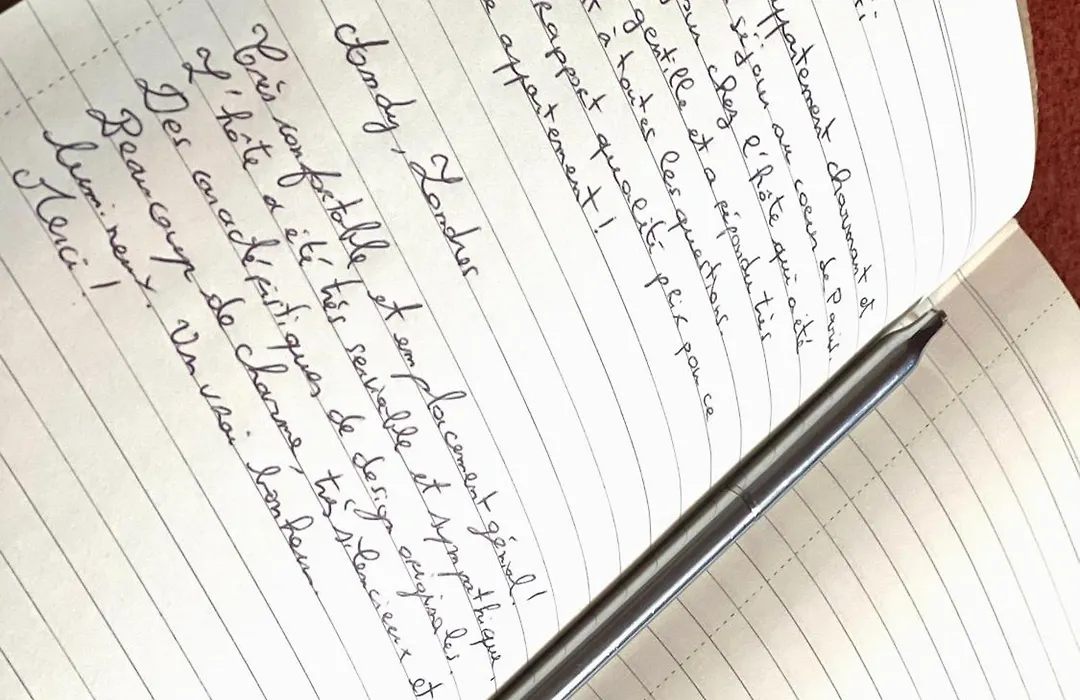 ppartement charmant et
séjour au coeur de Paris.
chez l'hôte qui a été
gentille et a répondu très
à toutes les questions
rapport qualité prix pour ce
appartement!
Andy, Londres
Très confortable et emplacement génial!
L'hôte a été très serviable et sympathique.
Des caractéristiques de design originales.
Beaucoup de charme, très silencieux et
lumineux. Un vrai bonheur.
Merci!